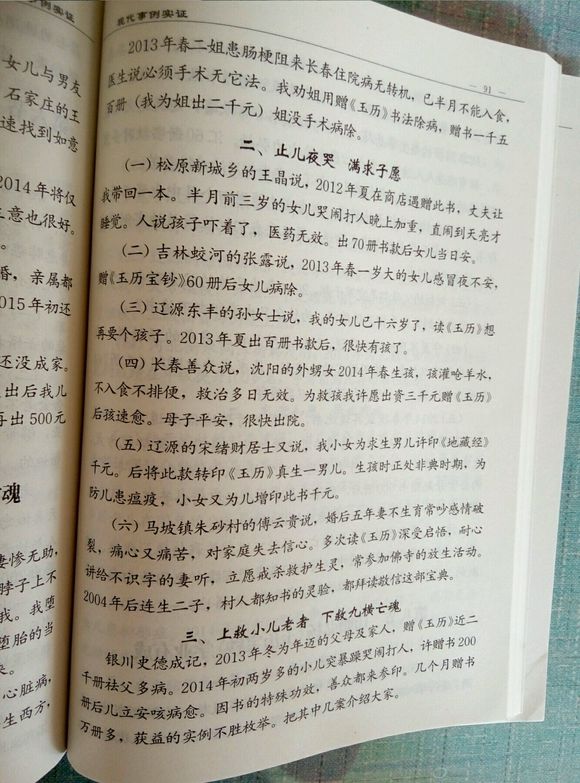 事例实证
女儿与男友
石家庄的王
速找到如意
2014年将仅
意也很好。
婚，亲属都
015年初还
还没成家。
出后我儿
再出500元
魂
妻惨无助，
脖子上不
我。我堕
堕胎的当
来。
心脏病，
生西方，
现代事例实证
— 91 —
2013年春二姐患肠梗阻来长春住院病无转机，已半月不能入食，
医生说必须手术无它法。我劝姐用赠《玉历》书法除病，赠书一千五
百册（我为姐出二千元）姐没手术病除。
二、止儿夜哭 满求子愿
（一）松原新城乡的王晶说，2012年夏在商店遇赠此书，丈夫让
我带回一本。半月前三岁的女儿哭闹打人晚上加重，直闹到天亮才
睡觉。人说孩子吓着了，医药无效。出70册书款后女儿当日安。
（二）吉林蛟河的张露说，2013年春一岁大的女儿感冒夜不安，
赠《玉历宝钞》60册后女儿病除。
（三）辽源东丰的孙女士说，我的女儿已十六岁了，读《玉历》想
再要个孩子。2013年夏出百册书款后，很快有孩了。
（四）长春善众说，沈阳的外甥女2014年春生孩，孩灌呛羊水，
不入食不排便，救治多日无效。为救孩我许愿出资三千元赠《玉历》
后孩速愈。母子平安，很快出院。
（五）辽源的宋绪财居士又说，我小女为求生男儿许印《地藏经》
千元。后将此款转印《玉历》真生一男儿。生孩时正处非典时期，为
防儿患瘟疫，小女又为儿增印此书千元。
（六）马坡镇朱砂村的傅云贵说，婚后五年妻不生育常吵感情破
裂，痛心又痛苦，对家庭失去信心。多次读《玉历》深受启悟，耐心
讲给不识字的妻听，立愿戒杀救护生灵，常参加佛寺的放生活动。
2004年后连生二子，村人都知书的灵验，都拜读敬信这部宝典。
三、上救小儿老者 下救九横亡魂
银川史德成记，2013年冬为年迈的父母及家人，赠《玉历》近二
千册祛父多病。2014年初两岁多的小儿突暴躁哭闹打人，许赠书200
册后儿立安咳病愈。因书的特殊功效，善众都来参印。几个月赠书
万册多，获益的实例不胜枚举。把其中几案介绍大家。